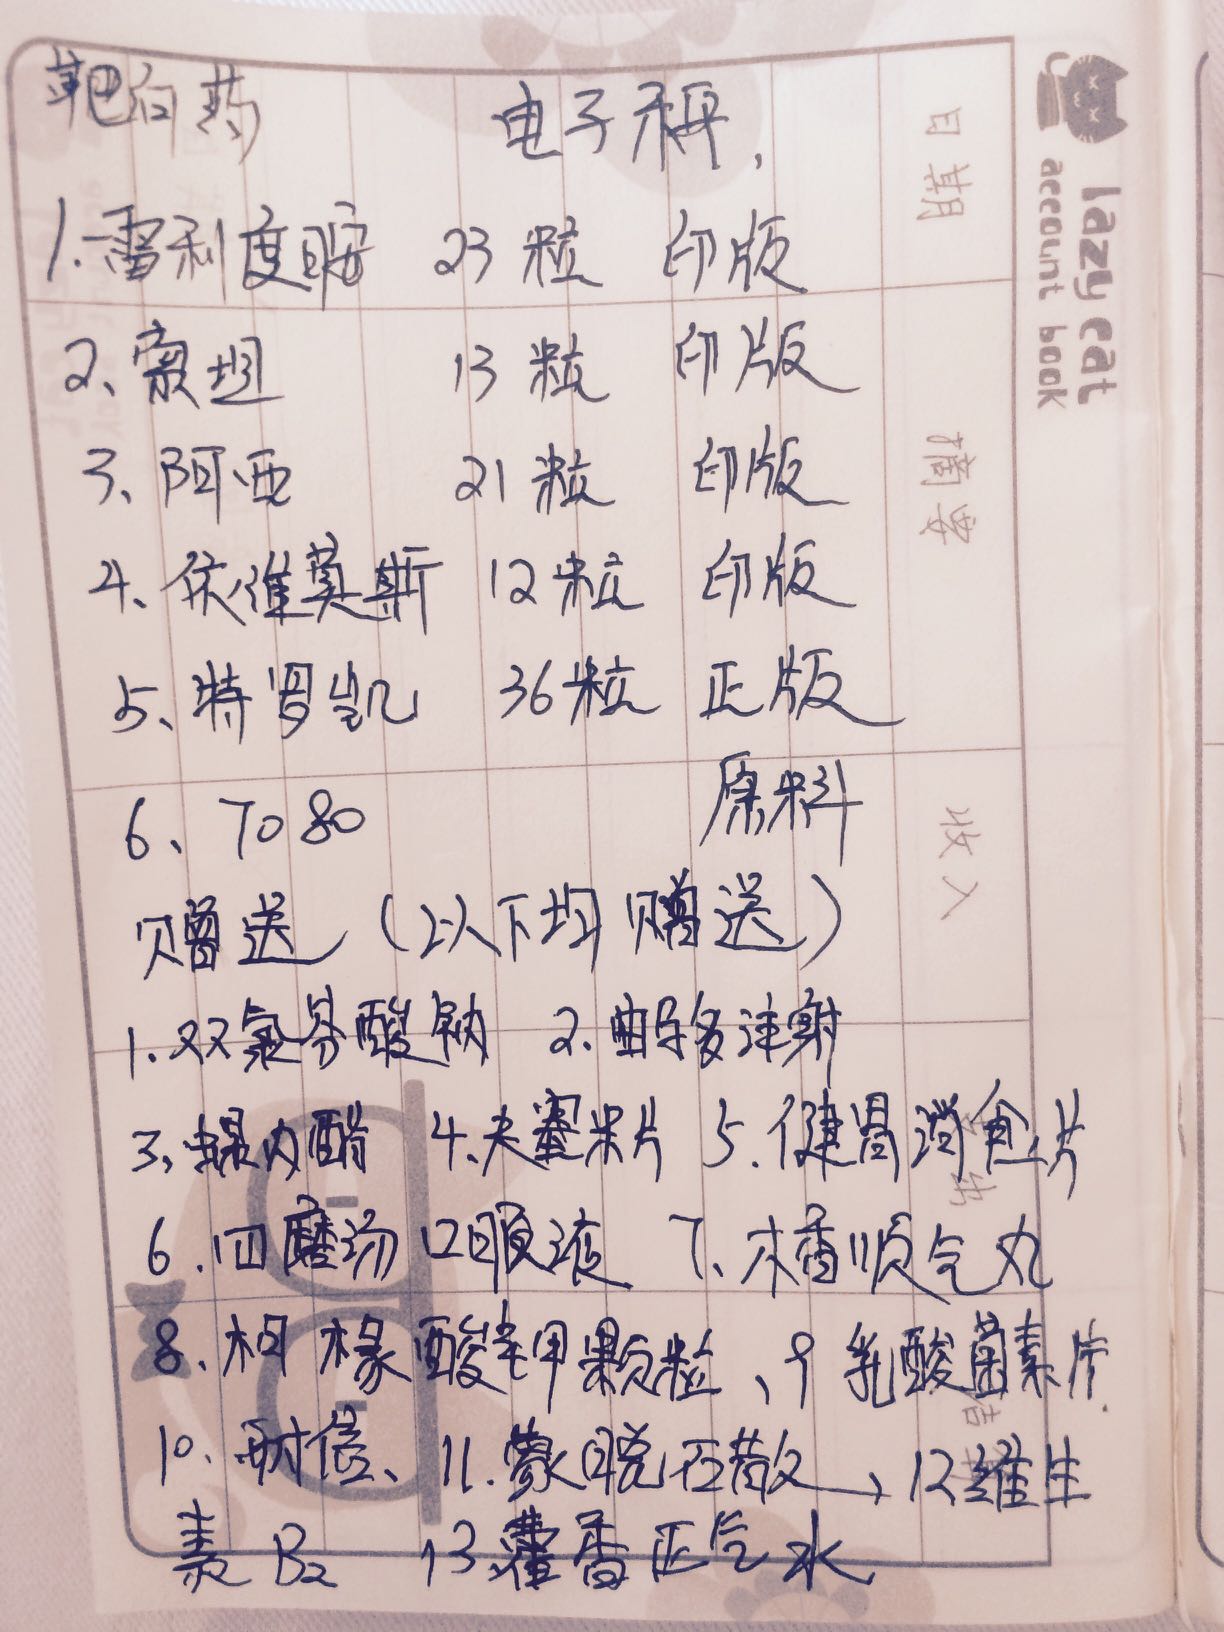 靶向药 电子秤.
1.雷利度胺 23粒 印版
2、索坦 13粒 印版
3、阿西 21粒 印版
4、依维莫斯 12粒 印版
5、特罗凯 36粒 正版
6、7080 原料
赠送(以下均赠送)
1.双氯芬酸钠 2.曲马多注射
3、螺内酯 4.大蜜米片 5.健胃消食片
6.四磨汤口服液 7、木香顺气丸
8、枸橼酸钾颗粒、9乳酸菌素片
10、耐信、11.蒙脱石散、12维生
素B2 13藿香正气水
日期
摘要
收入
lazy cat
account book